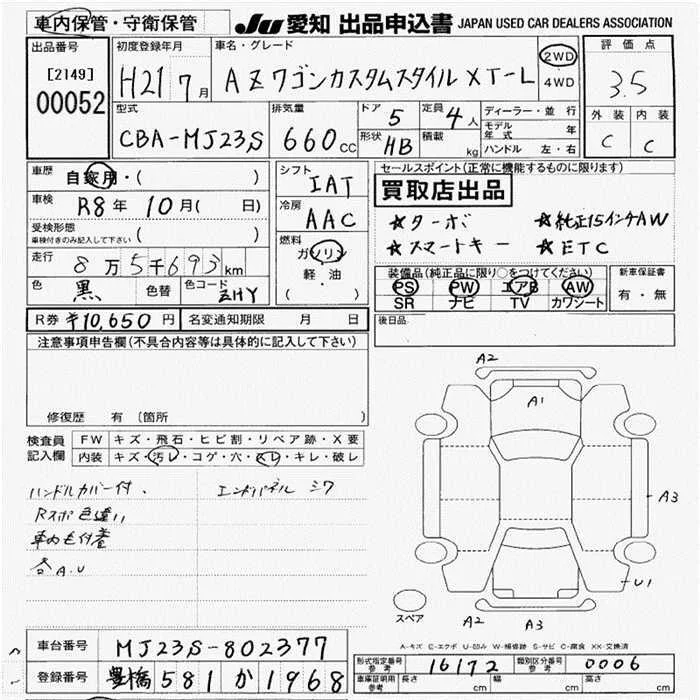 車内保管・守衛保管
JU 愛知 出品申込書 JAPAN USED CAR DEALERS ASSOCIATION
出品番号
[2149]
00052
初度登録年月
H21 7月
車名・グレード
AZワゴンカスタムスタイル XT-L
2WD
4WD
評価点
3.5
型式
CBA-MJ23S
排気量
660cc
ドア
5
定員
4人
形状
HB
積載
kg
ディーラー・並行
モデル年式 年
ハンドル 左・右
外装 内装
C C
車歴
自家用・( )
車検
R8年 10月( 日)
受検形態
車検付きのみ記入して下さい ( )
走行
8万5千693km
色
黒
色替
色コード
ZHY
シフト
IAT
冷房
AAC
燃料
ガソリン
軽・油
( )
セールスポイント(正常に機能するものに限ります)
買取店出品
★ターボ ★純正15インチAW
★スマートキー ★ETC
装備品(純正品に限り○をつけてください)
PS PW エアB AW
SR ナビ TV カワシート
新車保証書
有・無
R券 ¥10,650円
名変通知期限 月 日
後日品
注意事項申告欄(不具合内容等は具体的に記入して下さい)
修復歴 有 〔箇所 〕
検査員記入欄
FW キズ・飛石・ヒビ割・リペア跡・X要
内装 キズ・汚レ・コゲ・穴・スレ・キレ・破レ
ハンドルカバー付. エンドパネル シワ
Rスポ色違い
車内毛付着
各A.U
A2
A1
A3
U1
スペア
A2
A3
A-キズ E-エクボ U-凹み W-補修跡 S-サビ C-腐食 XX-交換済
車台番号
MJ23S-802377
登録番号
豊橋 581 か 1968
形式指定番号
参考
16172
類別区分番号
参考
0006
車庫証明用
参考
長さ cm 幅 cm 高さ cm